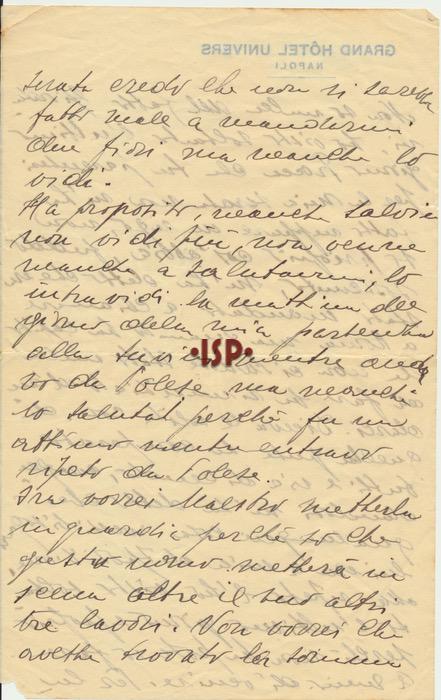 GRAND HÔTEL UNIVERS
NAPOLI
serata credo che non si sarebbe
fatto male a mandarmi
due fiori ma neanche lo
vidi.
A proposito, neanche Salvini
non vidi più, non venne
neanche a salutarmi, lo
intravidi la mattina del
giorno della mia partenza
alla mentre
da Polese ma neanche
lo salutai perchè fu un
attimo mentre entravo
ripeto da Polese.
Ora vorrei Maestro metterla
in guardia perchè so che
questo uomo metterà in
scena oltre il suo altri
tre lavori. Non vorrei che
avesse trovato la somma
•ISP•